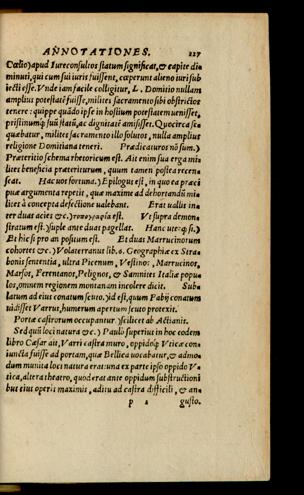 ANNOTATIONES. 227
Cœlio) apud Iureconsultos statum significat, & capite di-
minuti, qui cum sui iuris fuissent, cœperunt alieno iuri sub
iecti esse. Vnde iam facile colligitur, L. Domitio nullam
amplius potestatē fuisse, milites sacramento sibi obstrictos
tenere: quippe quādo ipse in hostium potestatem uenisset,
pristinumq́; suū statū, ac dignitatē amisisset. Quocirca se-
quebatur, milites sacramento illo solutos, nulla amplius
religione Domitiana teneri. Prædicaturos nō sum.)
Præteritio schema rhetoricum est. Ait enim sua erga mi-
lites beneficia præteriturum, quum tamen postea recen-
seat. Hac uos fortuna.) Epilogus est, in quo ea præci
pua argumenta repetit, quæ maxime ad dehortandū mi-
lites à concepta defectione ualebant. Erat uallis in-
ter duas acies &c.) τοπογραφία est. Vt supra demon-
stratum est.) suple ante duas pagellas. Hanc uter q; si.)
Et hic si pro an positum est. Et duas Marrucinorum
cohortes &c.) Volaterranus lib. 6. Geographiæ ex Stra-
bonis sententia, ultra Picenum, Vestinos, Marrucinos,
Marsos, Ferentanos, Pelignos, & Samnites Italiæ popu-
los, omnem regionem montanam incolere dicit. Sub-
latum ad eius conatum scuto.) id est, quum Fabij conatum
uidisset Varrus, humerum apertum scuto protexit.
Portæ castrorum occupantur.) scilicet ab Actianis.
Sed quū loci natura &c.) Paulò superius in hoc eodem
libro Cæsar ait, Varri castra muro, oppidoq́; Vticæ con-
iuncta fuisse ad portam, quæ Bellica uocabatur, & admo-
dum munita loci natura erat: una ex parte ipso oppido V-
tica, altera theatro, quod erat ante oppidum substructioni
bus eius operis maximis, aditu ad castra difficili, & an-
p 2 gusto.